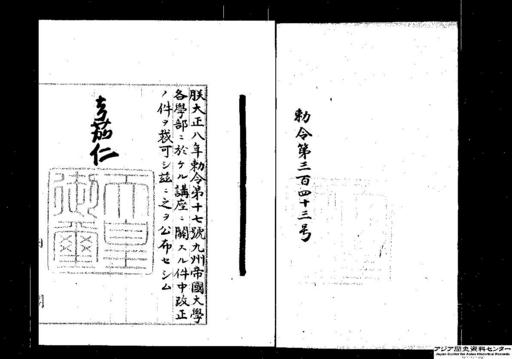 勅令第三百四十三号
朕大正八年勅令第十七號九州帝國大學
各學部ニ於ケル講座ニ關スル件中改正
ノ件ヲ裁可シ茲ニ之ヲ公布セシム
嘉仁
天皇
御璽
アジア歴史資料センター
Japan Center for Asian Historical Records